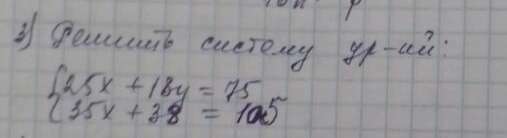 3) Решить систему ур-ий:
{25x + 18y = 75
{35x + 38 = 105